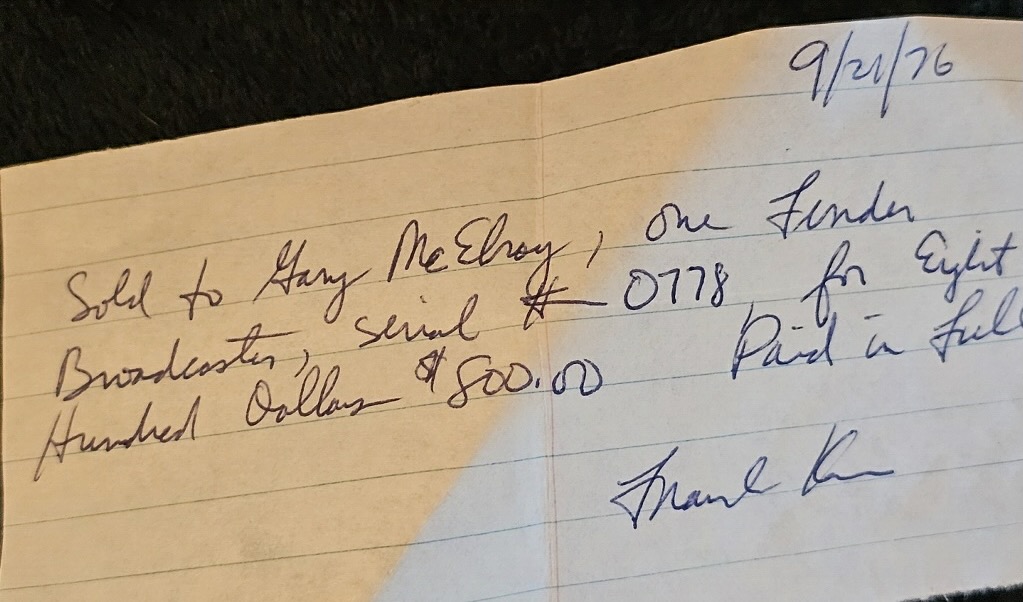 9/21/76
Sold to Gary McElroy, one Fender
Broadcaster, serial # 0778, for Eight
Hundred Dollars $800.00 Paid in Full
Frank